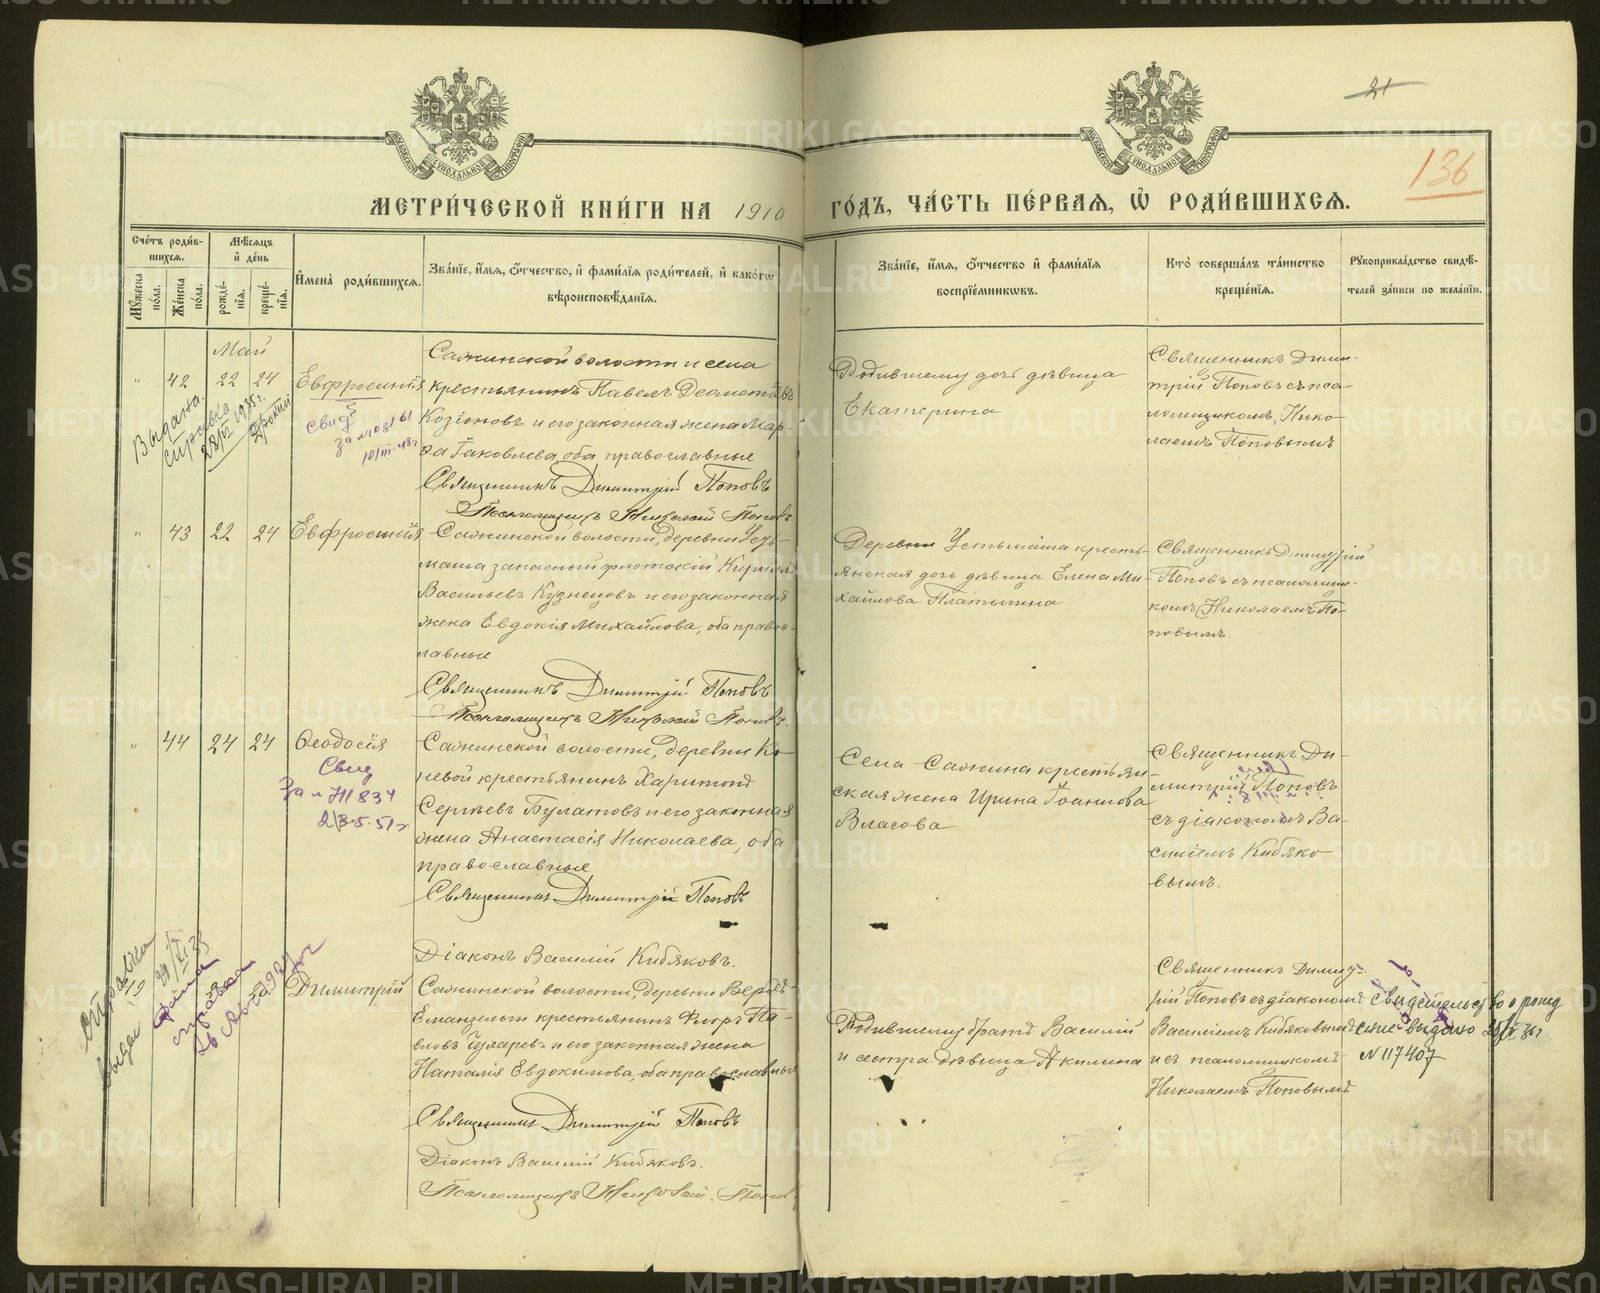 21
136
МЕТРИ́ЧЕСКОЙ КНИ́ГИ НА 1910 ГО́ДЪ, ЧА́СТЬ ПЕ́РВАЯ, Ѽ РОДИ́ВШИХСЯ.
Сче́тъ роди́в-
шихся.
Мꙋ́жеска по́ла.
Же́нска по́ла.
Мѣ́сяцъ
и҆ де́нь
рожде́-
нїя.
креще́-
нїя.
И҆мена̀ роди́вшихся.
Зва́нїе, и҆́мя, ѻ҆́тчество, и҆ фами́лїя роди́телей, и҆ како́гѡ
вѣроисповѣ́данїя.
Зва́нїе, и҆́мя, ѻ҆́тчество и҆ фами́лїя
воспрїе́мникѡвъ.
Кто̀ соверша́лъ та́инство
креще́нїя.
Рꙋкоприкла́дство свидѣ́-
телей за́писи по жела́нїю.
Май
" 42 22 24 Евфросинія
Сажинской волости и села
крестьянинъ Павелъ
Козіоновъ и его законная жена Мар-
ѳа Іаковлева, оба православные
Священникъ Димитрій Поповъ
Псаломщикъ Николай Поповъ
Выдана
справка
1935г.
Свид
10/III-48г
Родившему дочь дѣвица
Екатерина
Священникъ Дими-
трій Поповъ съ пса-
ломщикомъ Нико-
лаемъ Поповымъ
" 43 22 24 Евфросинія
Сажинской волости, деревни Усть-
маша запасный флотскій Кирилл
Васильевъ Кузнецовъ и его законная
жена Евдокія Михайлова, оба право-
славные
Священникъ Димитрій Поповъ
Псаломщикъ Николай Поповъ
Деревни Устьмаша кресть-
янская дочь дѣвица Елена Ми-
хайлова Платыгина
Священникъ Димитрій
Поповъ съ псаломщи-
комъ Николаемъ По-
повымъ.
" 44 24 24 Ѳеодосія
Сажинской волости, деревни Ко-
невой крестьянинъ Харитонъ
Сергѣевъ Булатовъ и его законная
жена Анастасія Николаева, оба
православные
Священникъ Димитрій Поповъ
Діаконъ Василій Кибяковъ.
Свид
За № 711834
2/3-5.51г
Села Сажина крестьян-
ская жена Ирина Іоаннова
Власова
Священникъ Ди-
митрій Поповъ
съ діакономъ Ва-
силіемъ Кибяко-
вымъ.
Димитрій
Сажинской волости, деревни Верхъ-
Еманзельги крестьянинъ Флоръ Па-
вловъ и его законная жена
Наталія Евдокимова, оба православные
Священникъ Димитрій Поповъ
Діаконъ Василій Кибяковъ.
Псаломщикъ Николай Поповъ
справка
выдан
справка
Родившему братъ Василій
и сестра дѣвица Акилина
Священникъ Димит-
рій Поповъ съ діакономъ
Василіемъ Кибяковымъ
и съ псаломщикомъ
Николаемъ Поповымъ
Свидетельство о рожд
выдано
№ 117407
METRIKI.GASO-URAL.RU